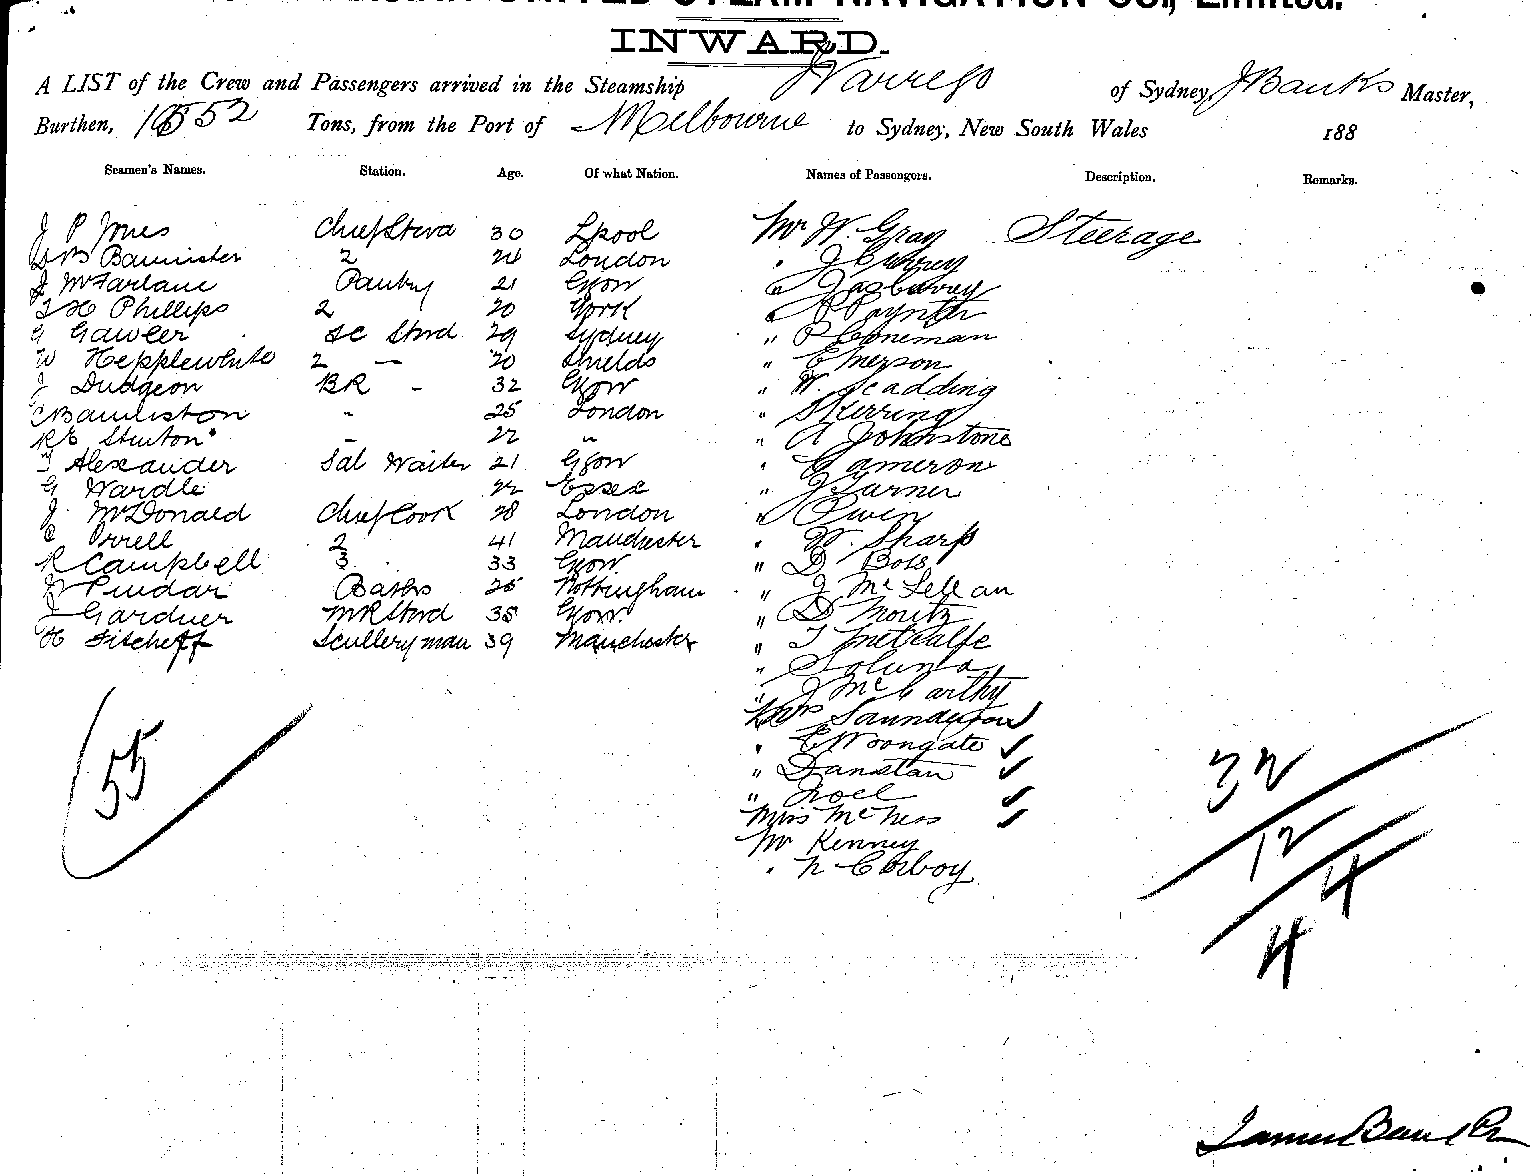 UNITED STEAM NAVIGATION CO., Limited.
INWARD.
A LIST of the Crew and Passengers arrived in the Steamship Warrego of Sydney, J Banks Master,
Burthen, 1552 Tons, from the Port of Melbourne to Sydney, New South Wales 188
Seamen's Names. Station. Age. Of what Nation. Names of Passengers. Description. Remarks.
J P Jones Chief Stwd 30 Lpool Mr W. Gray Steerage
Bannister 2 London J
J McFarlane Pantry 21 Gsow
Phillips 2 20 York Poynter
G Gawler SC Stwd 29 Sydney " P
W Hepplewhite 2 — 20 Shields " Emerson
J Dudgeon BR - 32 Gsow " W. Scadding
25 London " Skerring
RE Stinton - 22 " " A Johnstone
T Alexander Sal Waiter 21 Gsow Cameron
G Wardle 22 Essex " J Turner
J. McDonald Chief Cook 28 London " Owen
C Orrell 2 41 Manchester W Sharp
R Campbell 3 33 Gsow " D Bols
Pindar Baths 25 Nottingham " J McLellan
J Gardner MR Stwd 35 Gsow " D Moritz
H Scullery man 39 Manchester " T Metcalfe
"
" J McCarthy
Mrs Saunderson
" E Woongate
" Danstan
" Noel
Miss McNess
Mr Kenney
" N Corboy
55
32
12
4
4
James Banks